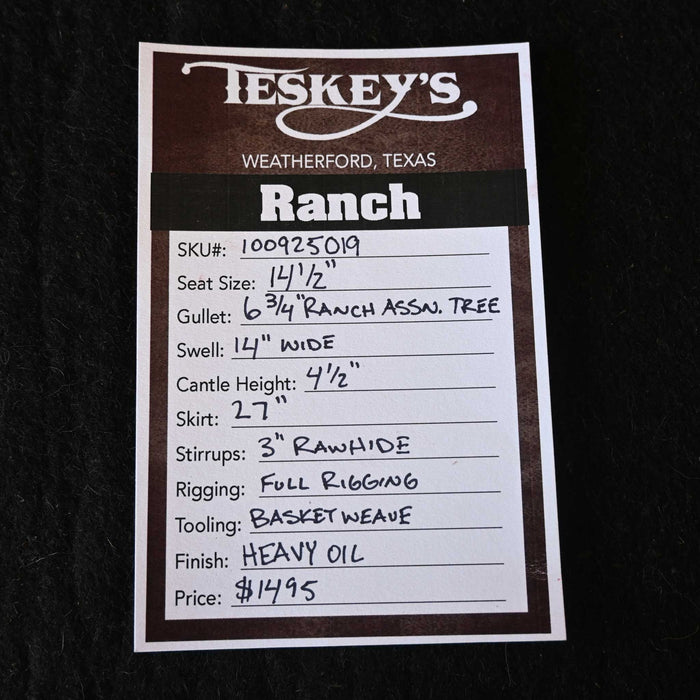 TESKEY'S
WEATHERFORD, TEXAS
Ranch
SKU#: 100925019
Seat Size: 14 1/2"
Gullet: 6 3/4" RANCH ASSN. TREE
Swell: 14" WIDE
Cantle Height: 4 1/2"
Skirt: 27"
Stirrups: 3" RAWHIDE
Rigging: FULL RIGGING
Tooling: BASKET WEAVE
Finish: HEAVY OIL
Price: $1495